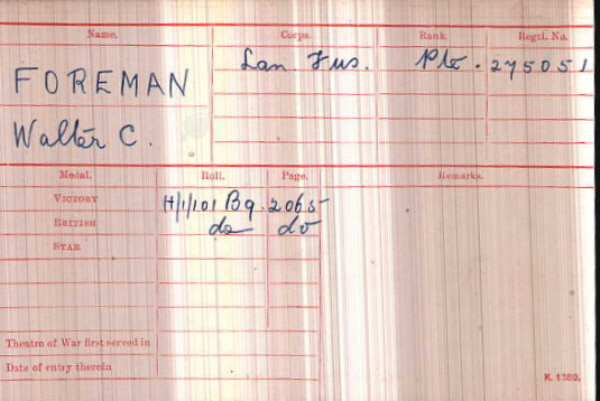 Name. Corps. Rank. Regtl. No.
FOREMAN Lan Fus. Pte. 275051
Walter C.
Medal. Roll. Page. Remarks.
VICTORY H/1/101 B9. 2065
BRITISH do do
STAR
Theatre of War first served in
Date of entry therein
K. 1380.